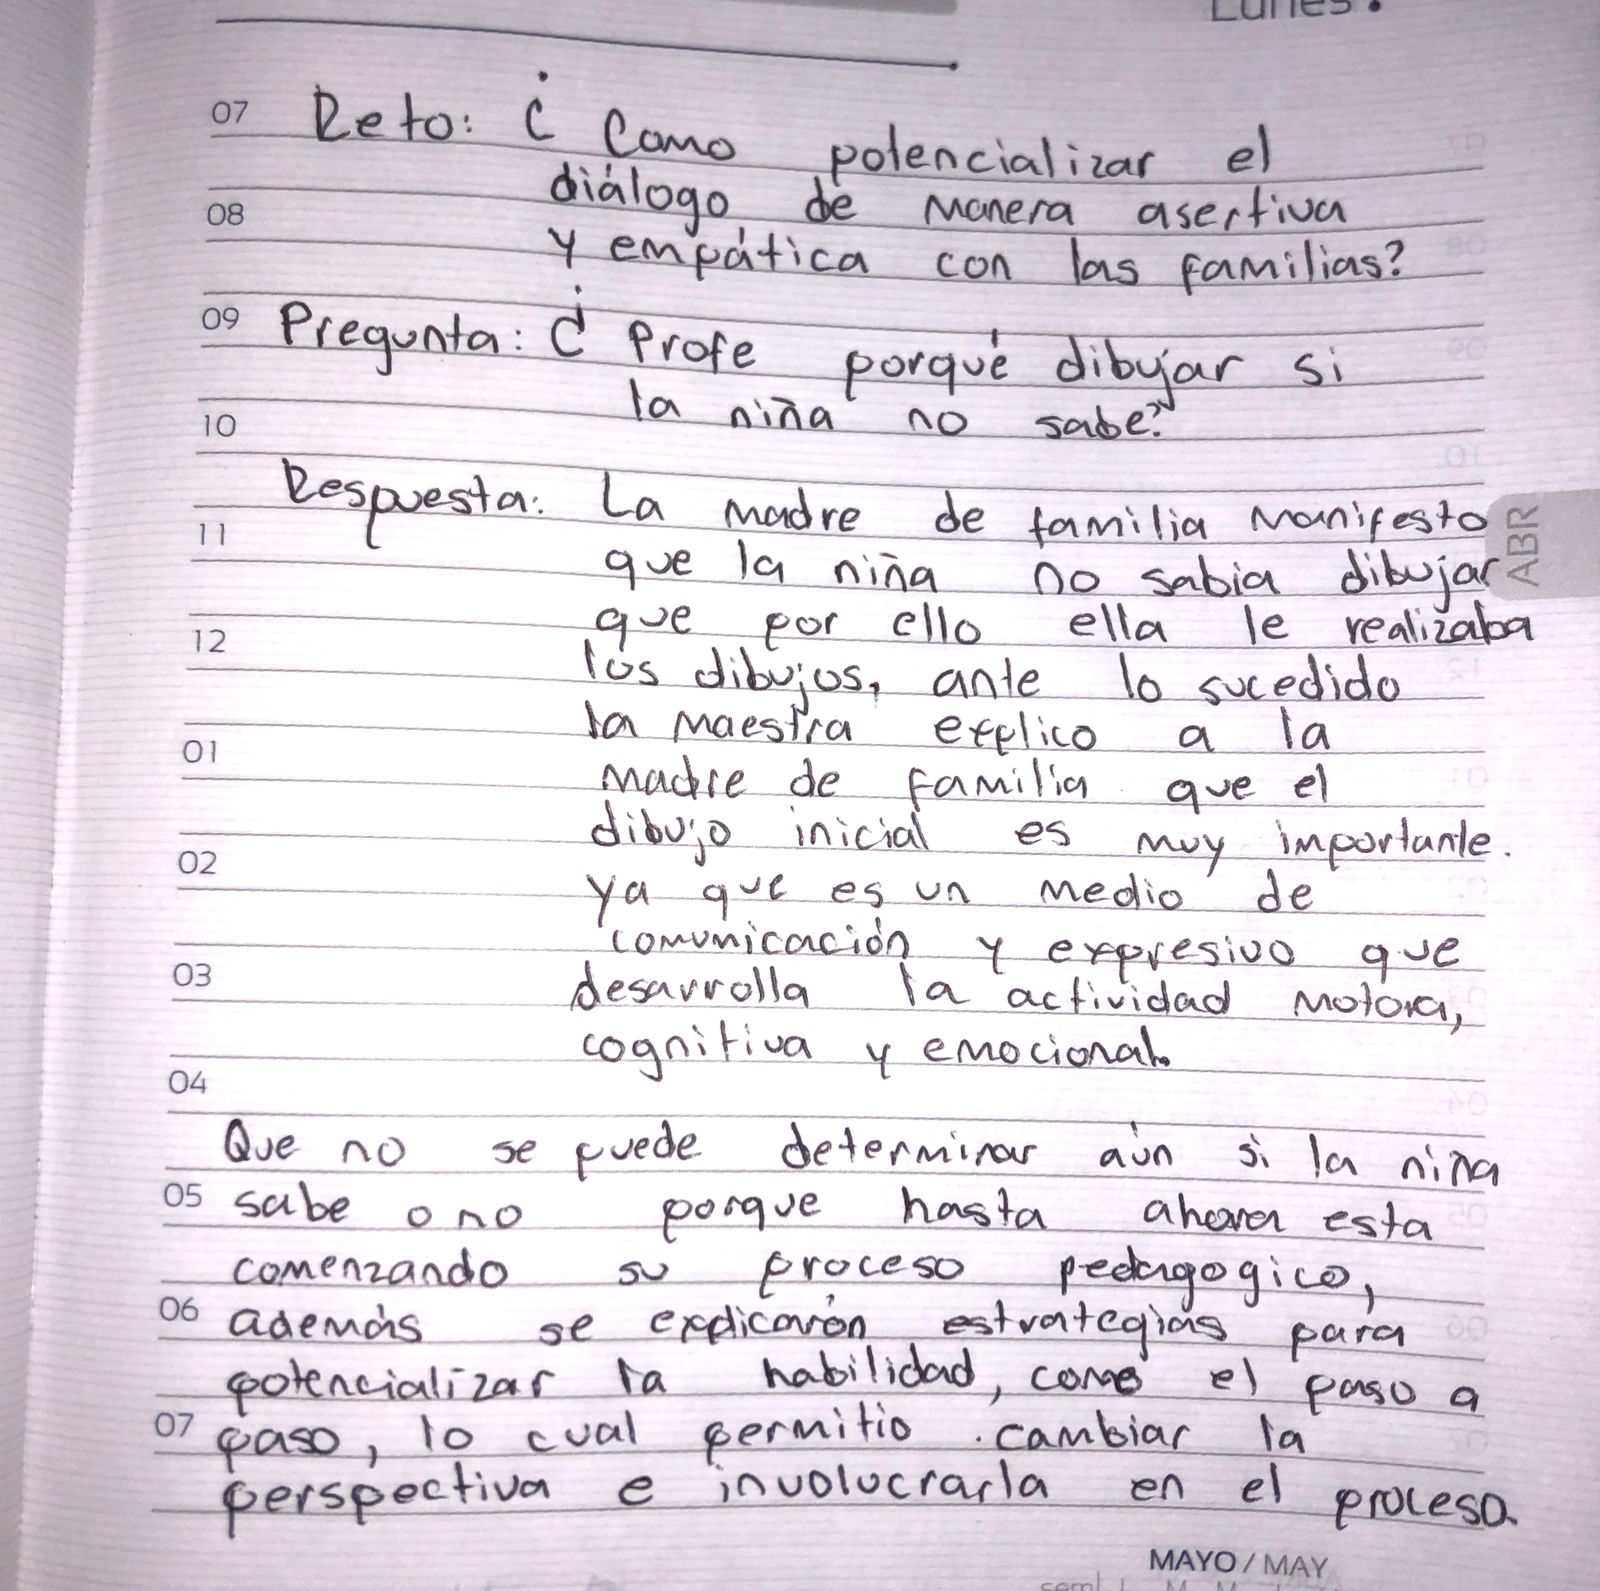 Lunes.
07 Reto: ¿ Como potencializar el
diálogo de manera asertiva
08
y empática con las familias?
09 Pregunta: ¿ Profe porqué dibujar si
la niña no sabe?
10
Respuesta: La madre de familia manifesto
11
ABR
que la niña no sabia dibujar
que por ello ella le realizaba
12
los dibujos, ante lo sucedido
la maestra explico a la
01
madre de familia que el
dibujo inicial es muy importante.
02
ya que es un medio de
comunicación y expresivo que
03
desarrolla la actividad motora,
cognitiva y emocional.
04
Que no se puede determinar aún si la niña
05 sabe o no porque hasta ahora esta
comenzando su proceso pedagogico,
06 además se explicarón estrategias para
potencializar la habilidad, como el paso a
07 paso, lo cual permitio cambiar la
perspectiva e involucrarla en el proceso.
MAYO / MAY